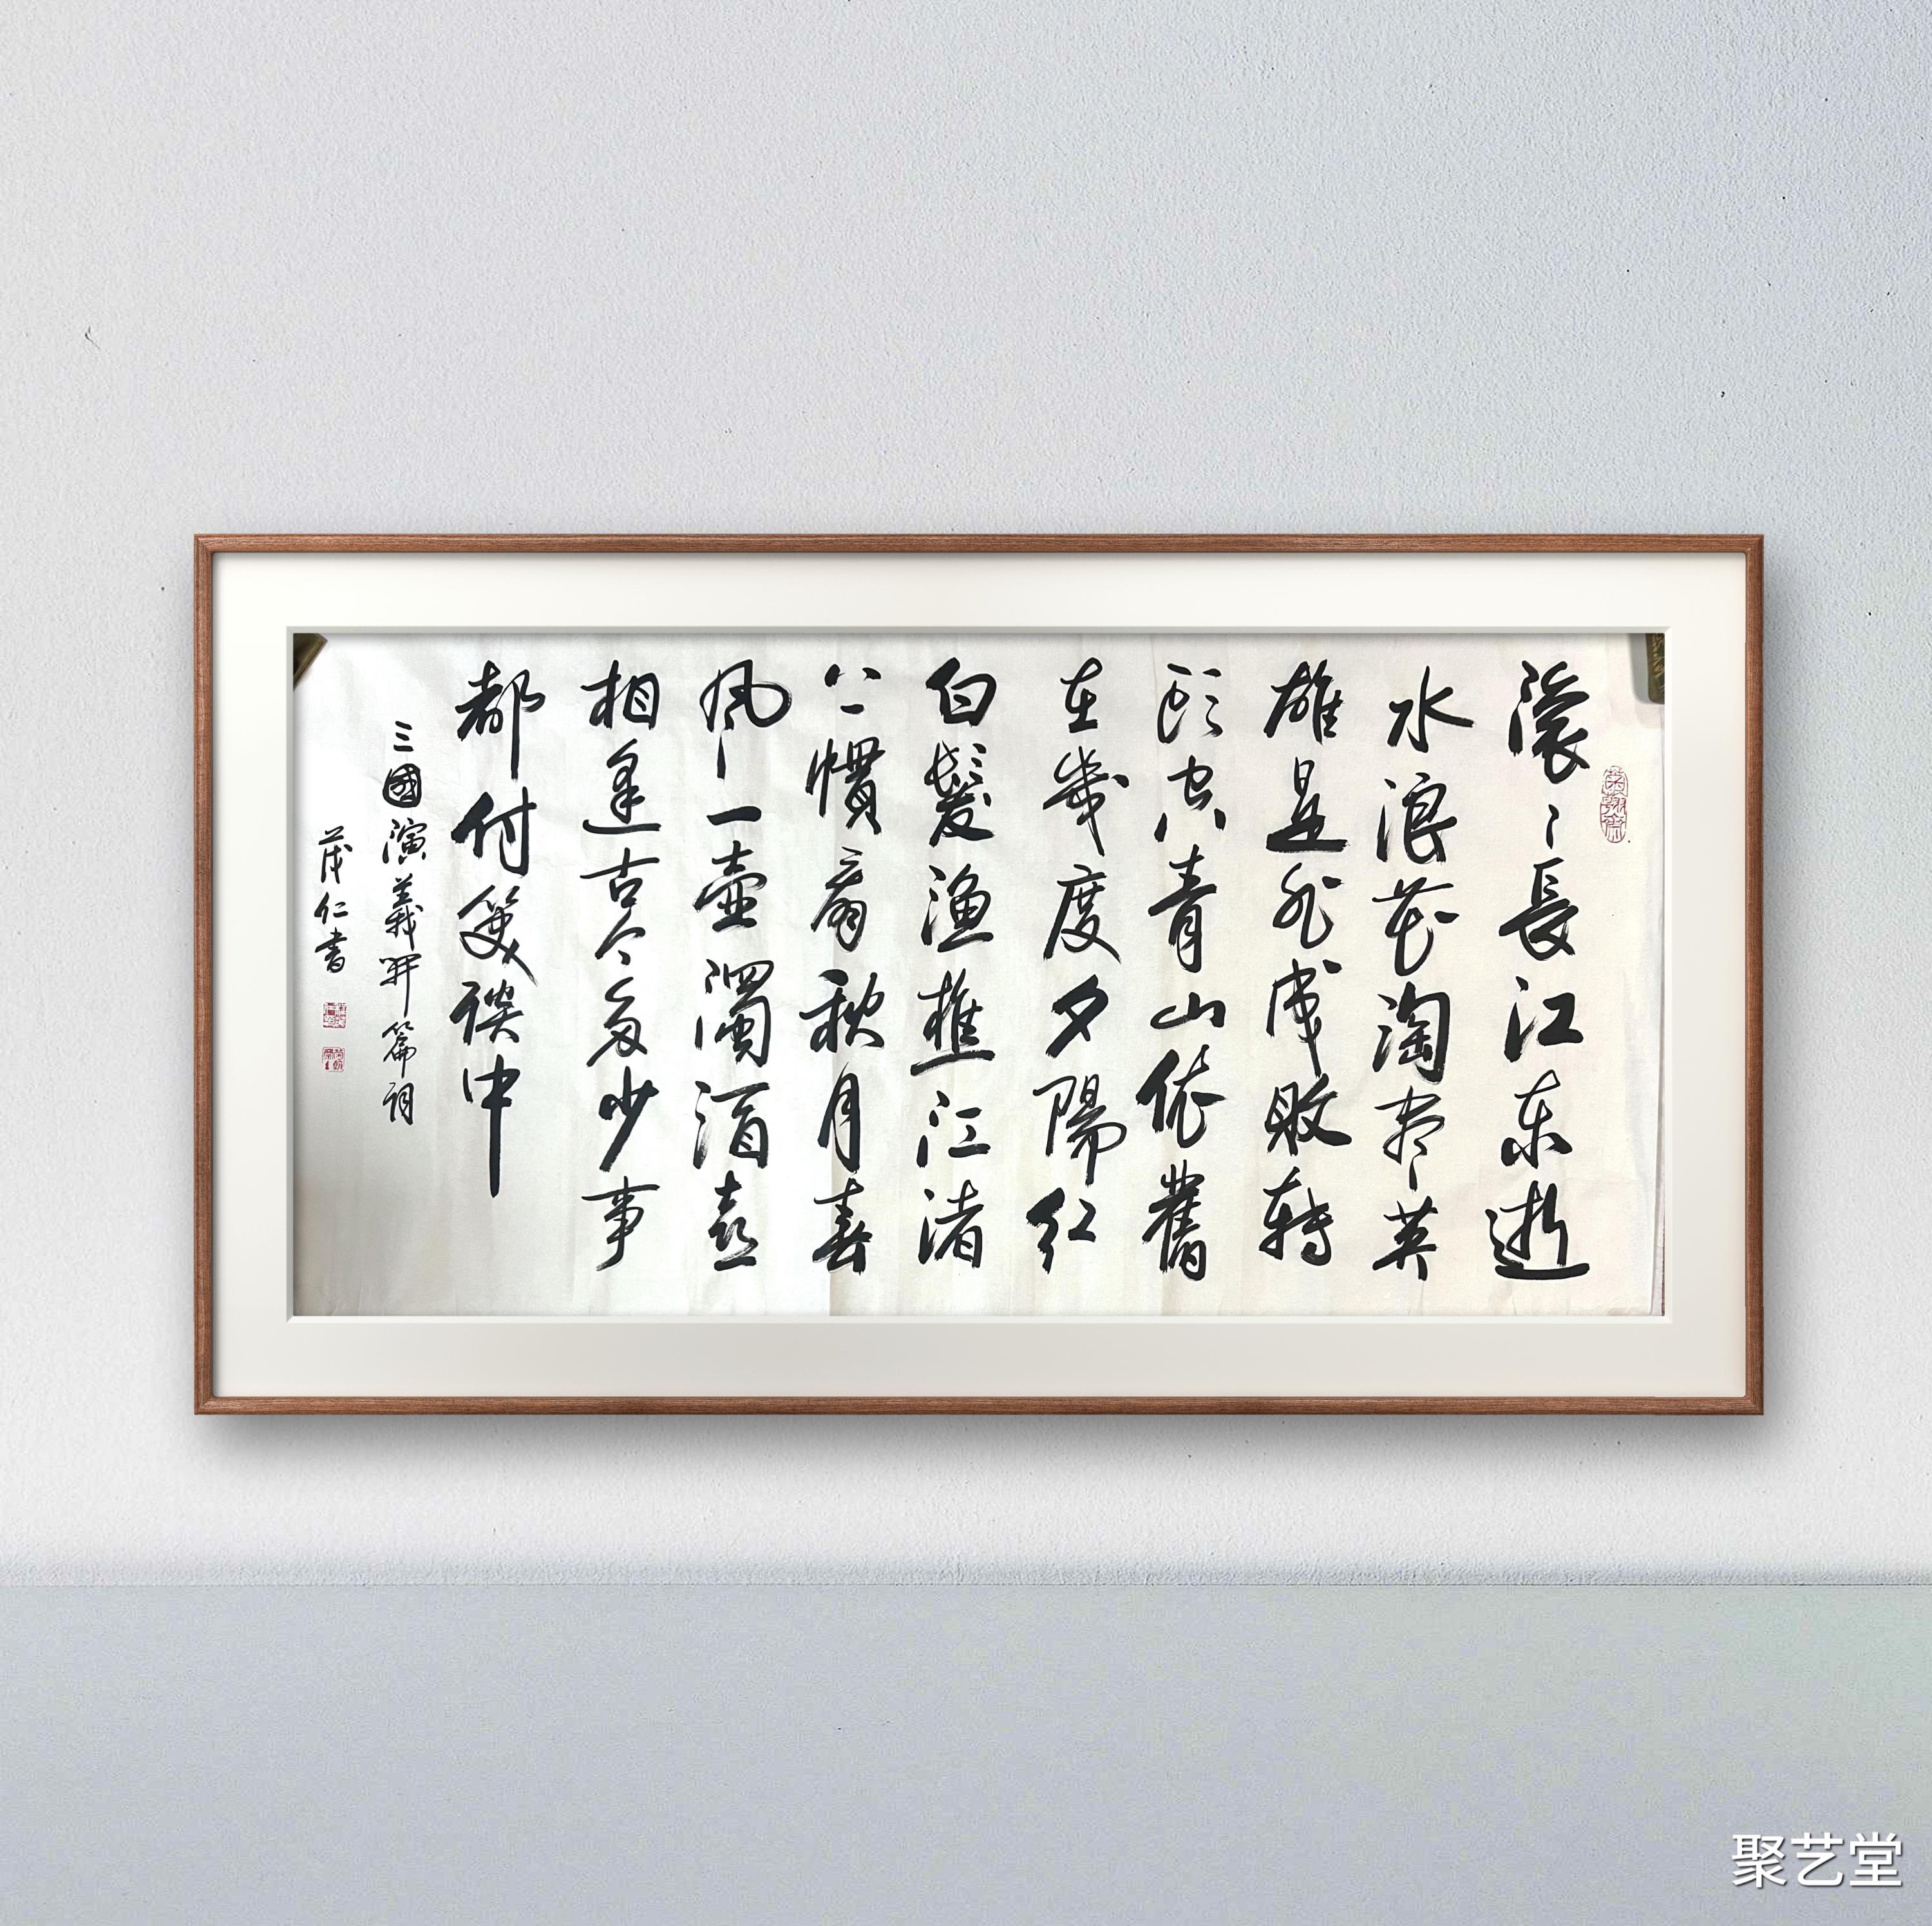 滾〻長江东逝
水浪花淘盡英
雄是非成敗转
頭空青山依舊
在幾度夕陽红
白髮渔樵江渚
上慣看秋月春
風一壺濁酒喜
相逢古今多少事
都付笑談中
三國演義開篇詞
茂仁書
聚艺堂